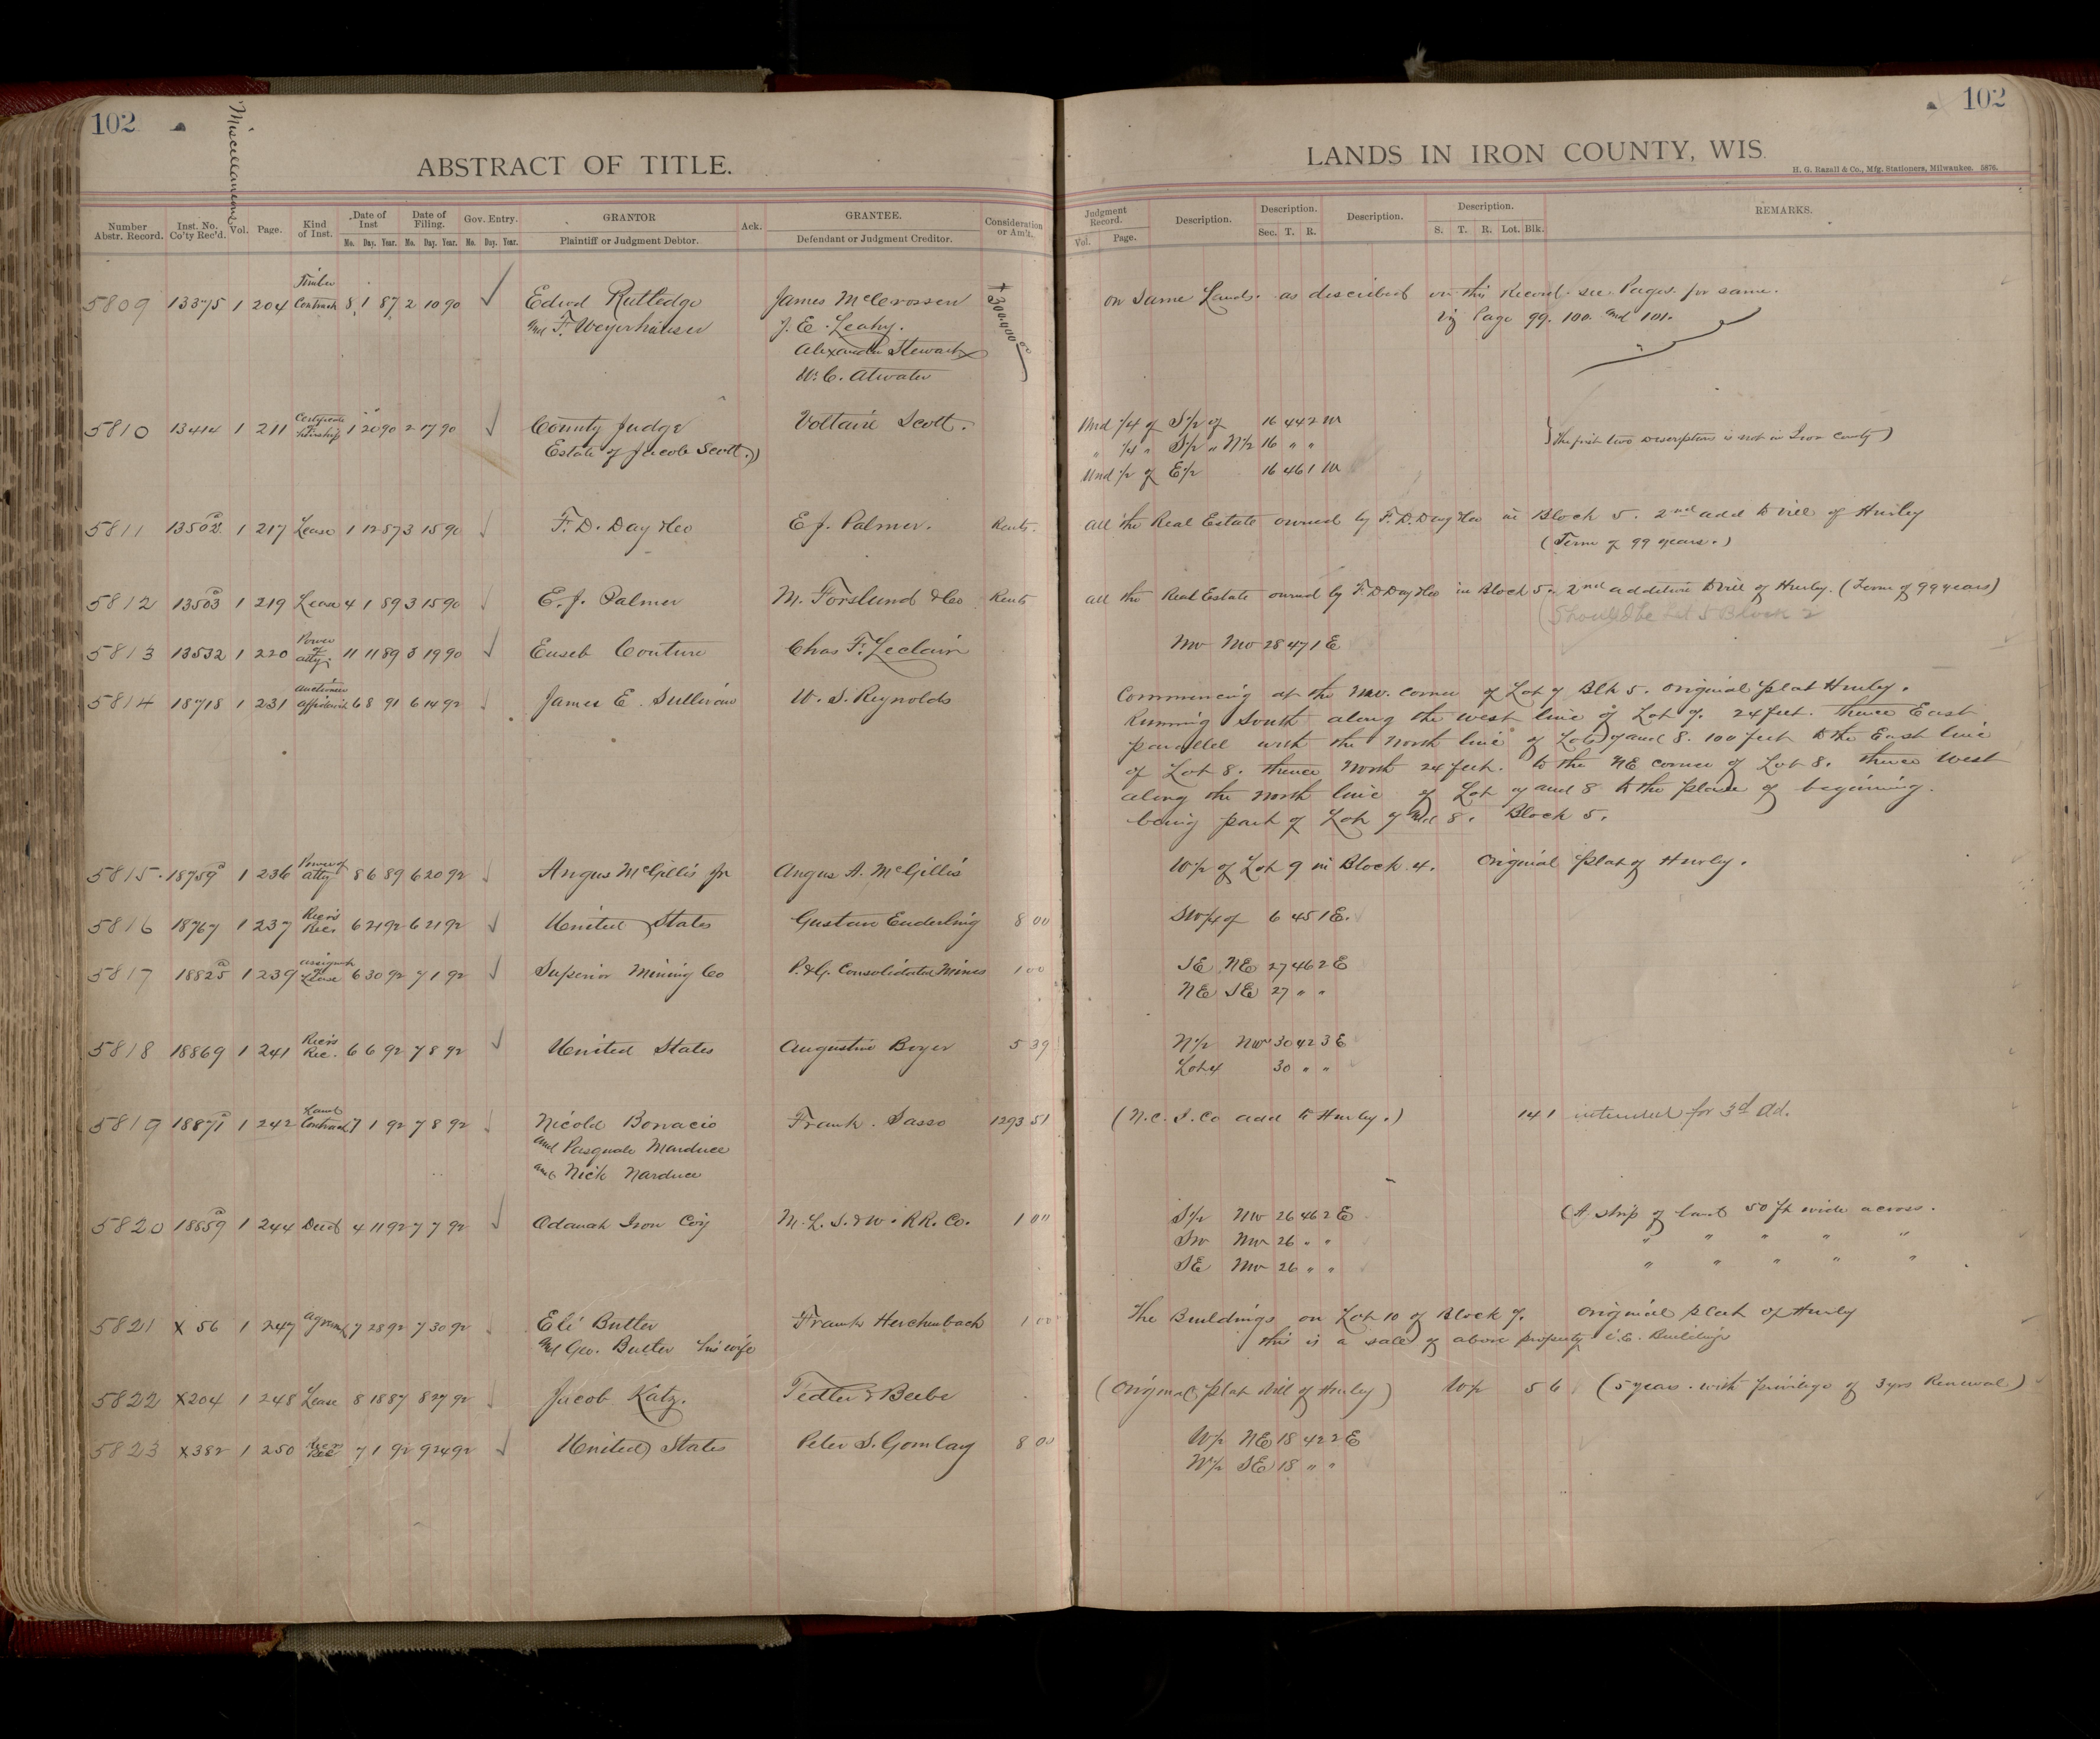 102
Miscellaneous
ABSTRACT OF TITLE.
Number Abstr. Record. Inst. No. Co'ty Rec'd. Vol. Page. Kind of Inst. Date of Inst Mo. Day. Year. Date of Filing. Mo. Day. Year. Gov. Entry. Mo. Day. Year. GRANTOR Plaintiff or Judgment Debtor. Ack. GRANTEE. Defendant or Judgment Creditor. Consideration or Am't.
5809 13375 1 204 Timber Contract 8 1 87 2 10 90 Edwd Rutledge James McCrossen $300.000 00
and F. Weyerhauser J. E. Leahy.
Alexander Stewart
W. C. Atwater
5810 13414 1 211 Certificate of Heirship 1 20 90 2 17 90 County Judge Voltaire Scott.
Estate of Jacob Scott.)
5811 13502 1 217 Lease 1 12 87 3 15 90 F. D. Day & Co E J. Palmer. Rents.
5812 13503 1 219 Lease 4 1 89 3 15 90 E. J. Palmer M. Forslund & Co Rents
5813 13532 1 220 Power of atty. 11 11 89 3 19 90 Euseb Couture Chas F. Leclair
5814 18718 1 231 affidavit 6 8 91 6 14 92 James E. Sullivan W. S. Reynolds
5815. 18759 1 236 Power of atty 8 6 89 6 20 92 Angus McGillis Jr Angus A. McGillis
5816 18767 1 237 Rec'rs Rec. 6 21 92 6 21 92 United States Gustav Enderling 8 00
5817 18825 1 239 assignmt of Lease 6 30 92 7 1 92 Superior Mining Co P. & G. Consolidated Mines 1 00
5818 18869 1 241 Rec'rs Rec. 6 6 92 7 8 92 United States Augustine Boyer 5 39
5819 18871 1 242 Land Contract 7 1 92 7 8 92 Nicola Bonacio Frank. Sasso 1293 51
and Pasquale Marduce
and Nick Narduce
5820 18859 1 244 Deed 4 11 92 7 7 92 Odanah Iron Coy M. L. S. & W. RR. Co. 1 00
5821 X 56 1 247 Agreemt 7 28 92 7 30 92 Eli Butler Frank Herchenbach 1 00
and Geo. Butler his wife
5822 X204 1 248 Lease 8 18 87 8 27 92 Jacob Katz. Fedler & Beebe
5823 X382 1 250 Rec'rs Rec 7 1 92 9 24 92 United States Peter S. Gomlay 8 00
102
LANDS IN IRON COUNTY, WIS
H. G. Razall & Co., Mfg. Stationers, Milwaukee. 5876.
Judgment Record. Vol. Page. Description. Description. Sec. T. R. Description. Description. S. T. R. Lot. Blk. REMARKS.
on Same Lands. as described on this Record. see Pages. for same.
viz Page 99. 100. and 101.
Und 1/4 of S 1/2 of 16 44 2 W
" 1/4 " S 1/2 " N 1/2 16 " " (The first two Descriptions is not in Iron County)
Und 1/2 of E 1/2 16 46 1 W
all the Real Estate owned by F. D. Day & Co in Block 5. 2nd add to vill of Hurley
(Term of 99 years.)
all the Real Estate owned by F. D Day & Co in Block 5 2nd addition to Vill of Hurley. (Term of 99 years)
(Should be Lot 5 Block 2
NW NW 28 47 1 E
Commencing at the NW. corner of Lot 7 Blk 5. Original plat Hurley.
Running South along the west line of Lot 7. 24 feet. thence East
parallel with the North line of Lots 7 and 8. 100 feet to the East line
of Lot 8. thence North 24 feet. to the NE corner of Lot 8. thence West
along the North line of Lot 7 and 8 to the place of beginning.
being part of Lot 7 and 8. Block 5.
W 1/2 of Lot 9 in Block 4. Original plat of Hurley.
SW 1/4 of 6 45 1 E.
SE NE 27 46 2 E
NE SE 27 " "
N 1/2 NW 30 42 3 E
Lot 4 30 " "
(N. C. I. Co add to Hurley.) 14 1 intended for 3d Ad.
S 1/2 NW 26 46 2 E (A. strip of land 50 ft wide across.
SW NW 26 " " " " " " "
SE NW 26 " " " " " " "
The Buildings on Lot 10 of Block 7. Original plat of Hurley
this is a sale of above property i.e. Buildings
(Original plat Vill of Hurley) W 1/2 5 6 (5 years. with privilege of 3 yrs Renewal)
W 1/2 NE 18 42 2 E
W 1/2 SE 18 " "